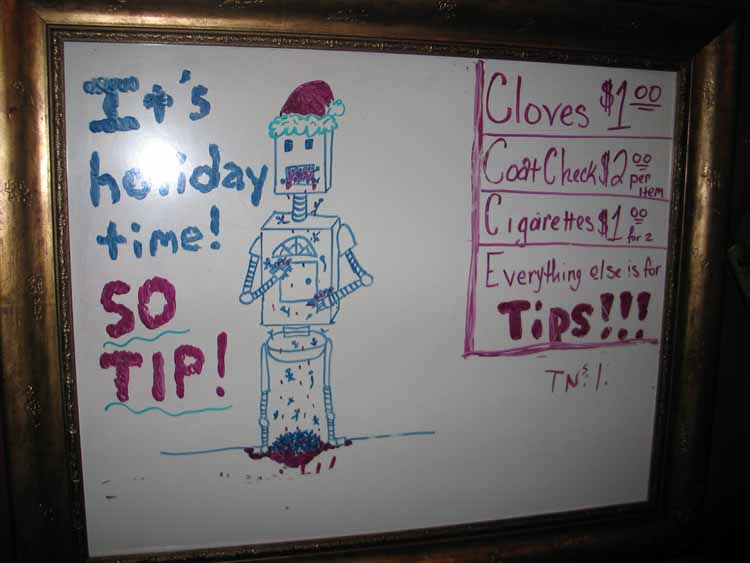 It's
holiday
time!
SO
TIP!
Cloves $1.00
Coat Check $2.00 per item
Cigarettes $1.00 for 2
Everything else is for
Tips!!!